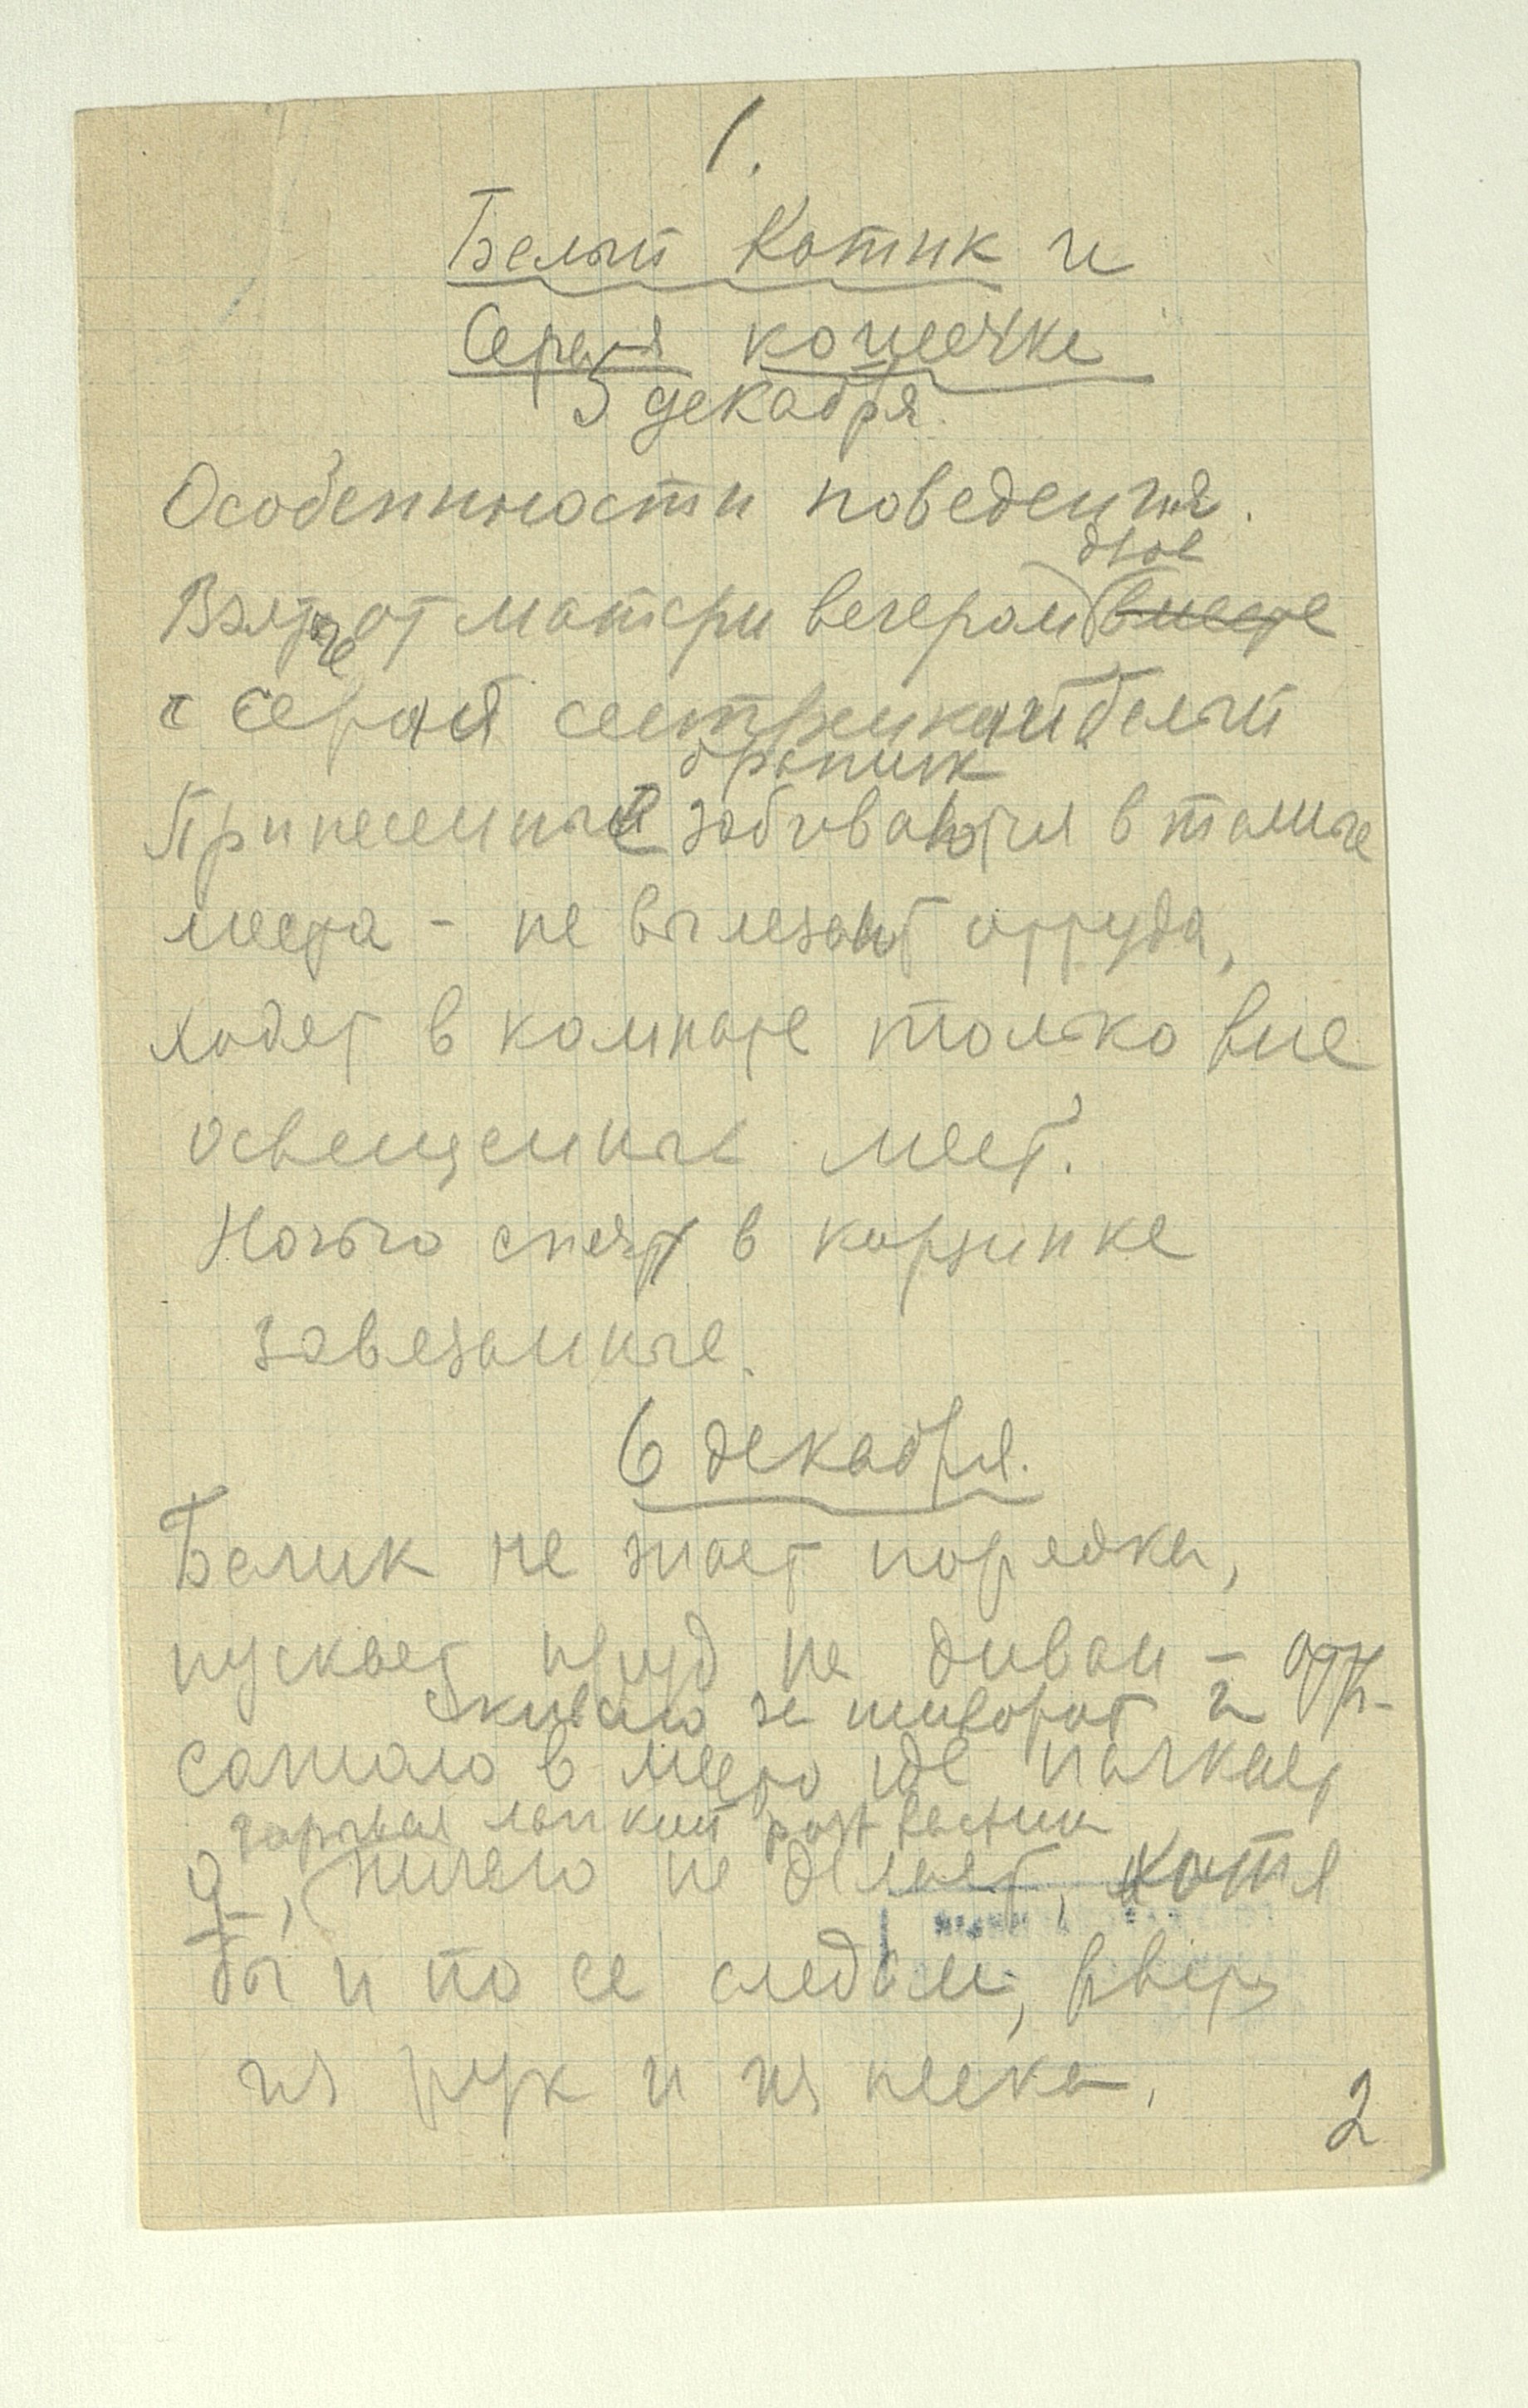 1.
Белый Котик и
Серая кошечка
5 декабря.
Особенности поведения.
двое
Взяты от матери вечером вместе
с серой сестренкой белый
братик
Принесенные забиваются в темные
места - не вылезают оттуда,
ходят в комнате только вне
освещенных мест.
Ночью спят в корзинке
завязанные.
6 декабря.
Белик не знает порядка,
пускает пруд на диван -
за шиворот и
сажаю в место где пачкает
лапкой
ничего не делает, хотя
бы и по ее следам, рвется
из рук и из песка.
2